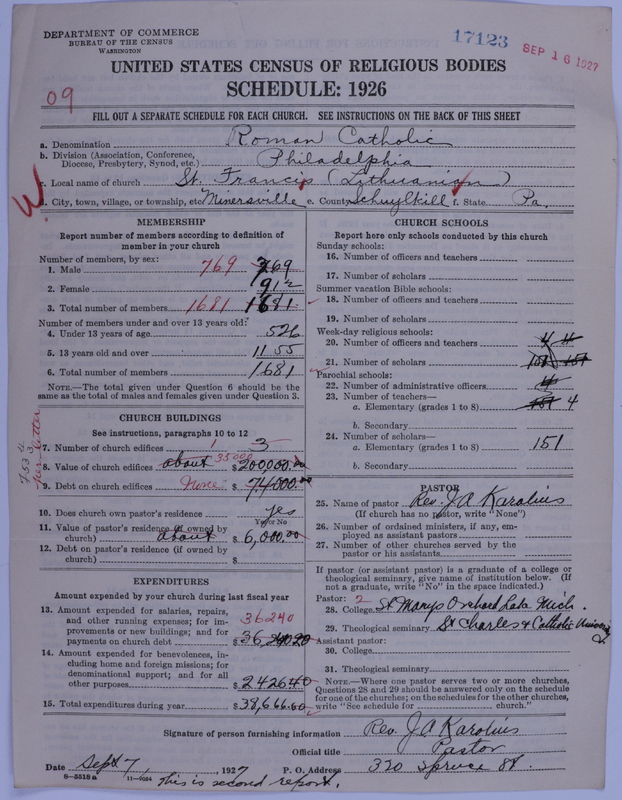 DEPARTMENT OF COMMERCE
BUREAU OF THE CENSUS
WASHINGTON
17123
SEP 16 1927
UNITED STATES CENSUS OF RELIGIOUS BODIES
SCHEDULE: 1926
09
FILL OUT A SEPARATE SCHEDULE FOR EACH CHURCH. SEE INSTRUCTIONS ON THE BACK OF THIS SHEET
a. Denomination Roman Catholic
b. Division (Association, Conference, Diocese, Presbytery, Synod, etc.) Philadelphia
c. Local name of church St. Francis (Lithuanian)
d. City, town, village, or township, etc Minersville e. County Schuylkill f. State Pa.
W
MEMBERSHIP
Report number of members according to definition of
member in your church
Number of members, by sex:
1. Male 769 769
2. Female 912
3. Total number of members 1681 1681
Number of members under and over 13 years old:
4. Under 13 years of age 526
5. 13 years old and over 1155
6. Total number of members 1681
NOTE.—The total given under Question 6 should be
the same as the total of males and females given under Question 3.
CHURCH BUILDINGS
See instructions, paragraphs 10 to 12
7. Number of church edifices 1 3
8. Value of church edifices about 35000 $200,000.00
9. Debt on church edifices None $74000.00
per letter
10. Does church own pastor's residence yes
Yes or No
11. Value of pastor's residence (if owned by
church) about $6,000.00
12. Debt on pastor's residence (if owned by
church) $
EXPENDITURES
Amount expended by your church during last fiscal year
13. Amount expended for salaries, repairs,
and other running expenses; for im-
provements or new buildings; and for
payments on church debt 36240 $
14. Amount expended for benevolences, in-
cluding home and foreign missions; for
denominational support; and for all
other purposes $2426.40
15. Total expenditures during year $38,666.60
CHURCH SCHOOLS
Report here only schools conducted by this church
Sunday schools:
16. Number of officers and teachers
17. Number of scholars
Summer vacation Bible schools:
18. Number of officers and teachers
19. Number of scholars
Week-day religious schools:
20. Number of officers and teachers 4 4
21. Number of scholars 151 151
Parochial schools:
22. Number of administrative officers 4
23. Number of teachers—
a. Elementary (grades 1 to 8) 151 4
b. Secondary
24. Number of scholars—
a. Elementary (grades 1 to 8) 151
b. Secondary
PASTOR
25. Name of pastor Rev. J A Karalius
(If church has no pastor, write "None")
26. Number of ordained ministers, if any, em-
ployed as assistant pastors
27. Number of other churches served by the
pastor or his assistants
If pastor (or assistant pastor) is a graduate of a college or
theological seminary, give name of institution below. (If
not a graduate, write "No" in the space indicated.)
Pastor: 2
28. College St Marys Orchard Lake Mich.
29. Theological seminary St Charles & Catholic University
Assistant pastor:
30. College
31. Theological seminary
NOTE.—Where one pastor serves two or more churches,
Questions 28 and 29 should be answered only on the schedule
for one of the churches; on the schedules for the other churches,
write "See schedule for church."
Signature of person furnishing information Rev. J A Karalius
Official title Pastor
Date Sept 7, 1927 P. O. Address 320 Spruce St.
8—5518a 11—9054 This is second report.